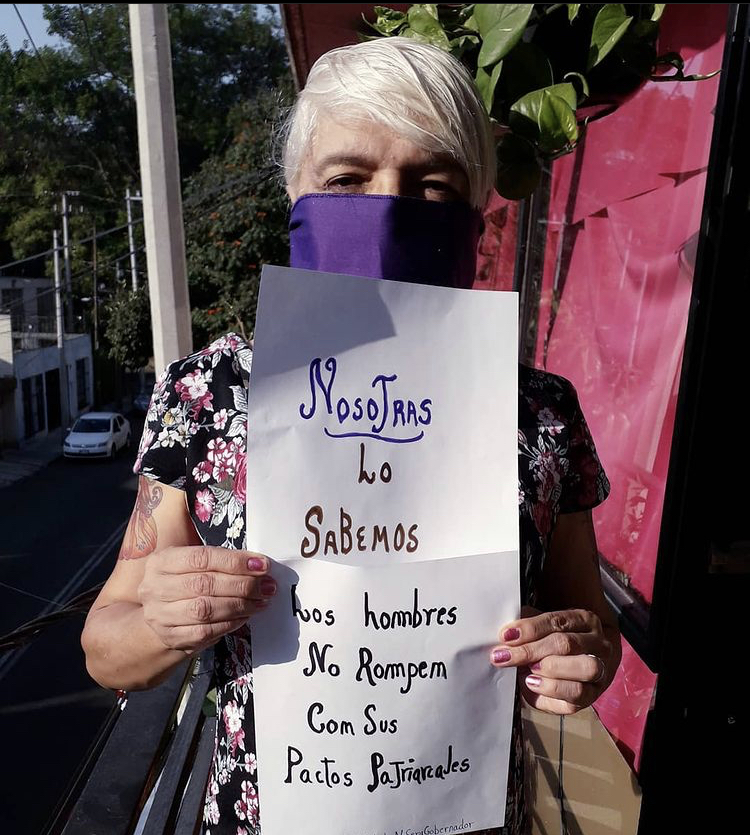 NosoTRAS
Lo
SABEMOS
Los hombres
No Rompem
Com Sus
Pactos PaTriarcales